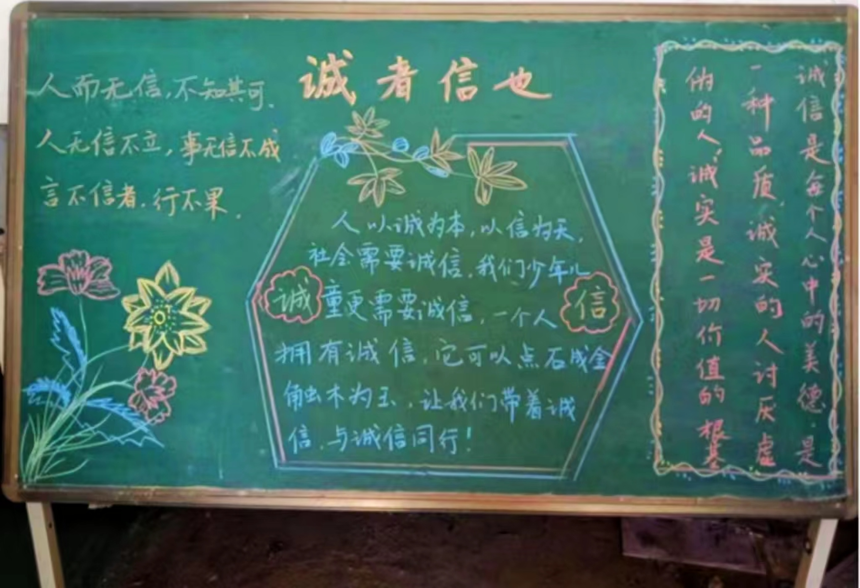 诚者信也
人而无信，不知其可、
人无信不立，事无信不成
言不信者，行不果．
人以诚为本，以信为天，
社会需要诚信，我们少年儿
诚
童更需要诚信，一个人
信
拥有诚信，它可以点石成金
触木为玉，让我们带着诚
信，与诚信同行！
诚信是每个人心中的美德，是
一种品质，诚实的人讨厌虚
伪的人，诚实是一切价值的根基